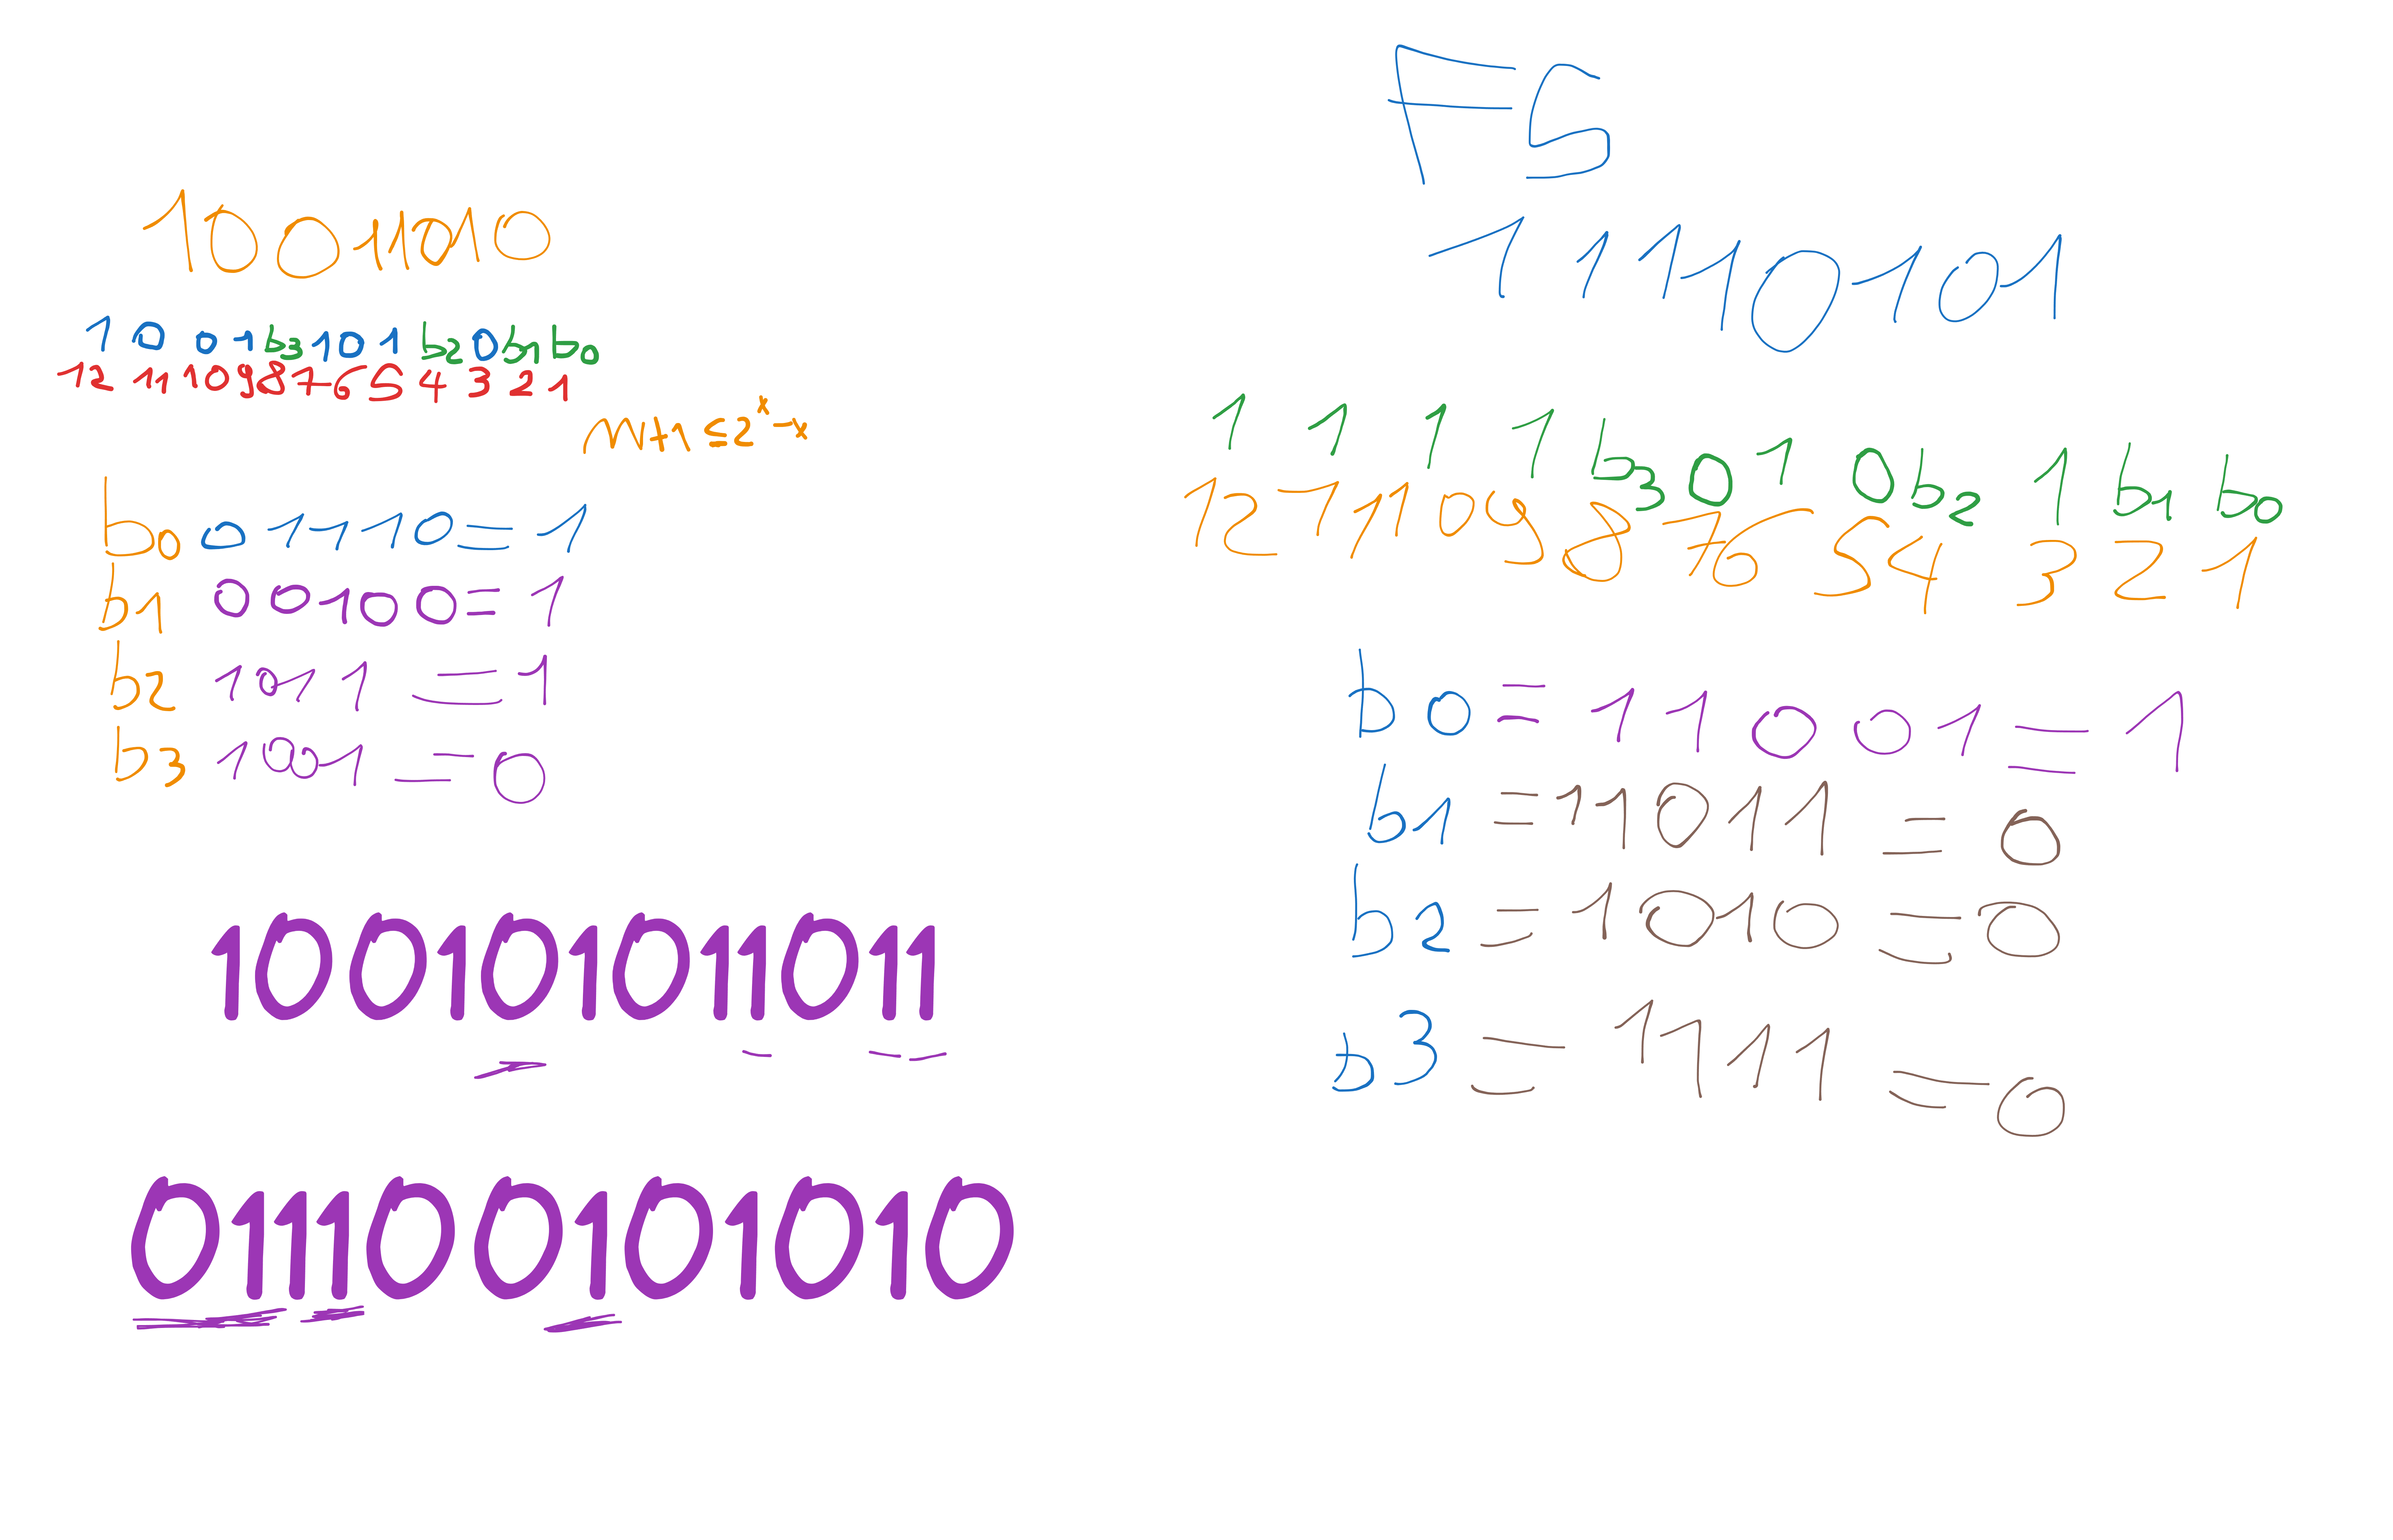 10011010
1 0 0 1 b3 1 0 1 b2 0 b1 b0
12 11 10 9 8 7 6 5 4 3 2 1
m+1 ≤ 2^x - x
b0 0 1 1 1 0 = 1
b1 0 0 1 0 0 = 1
b2 1 0 1 1 = 1
b3 1 0 0 1 = 0
100101011011
011100101010
F5
11110101
1 1 1 1 b3 0 1 0 b2 1 b1 b0
12 11 10 9 8 7 6 5 4 3 2 1
b0 = 1 1 0 0 1 = 1
b1 = 1 1 0 1 1 = 0
b2 = 1 0 1 0 = 0
b3 = 1 1 1 1 = 0